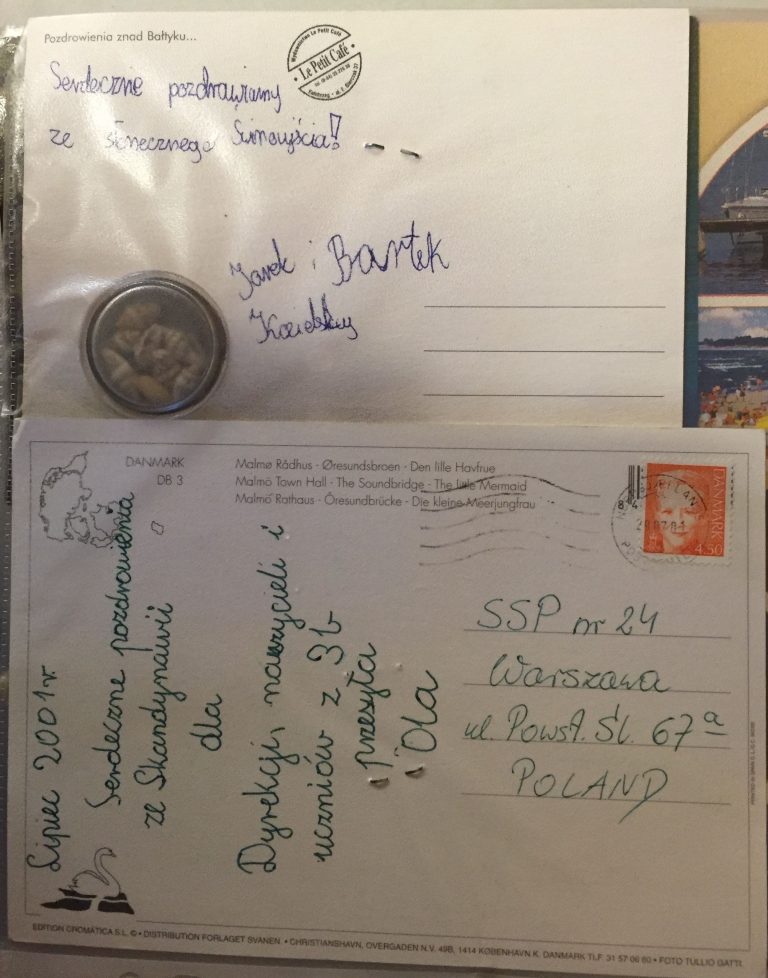 Pozdrowienia znad Bałtyku...
Le Petit Café
Serdecznie pozdrawiamy
ze słonecznego Świnoujścia!
Jarek i Bartek
DANMARK
DB 3
Malmø Rådhus · Øresundsbroen · Den lille Havfrue
Malmö Town Hall · The Soundbridge · The little Mermaid
Malmö Rathaus · Öresundbrücke · Die kleine Meerjungfrau
DANMARK
4.50
Lipiec 2001 r.
Serdeczne pozdrowienia
ze Skandynawii
dla
Dyrekcji, nauczycieli i
uczniów z 3b
przesyła
Ola
SSP nr 24
Warszawa
ul. Powst. Śl. 67a
POLAND
EDITION CROMATICA S.L. © • DISTRIBUTION FORLAGET SVANEN • CHRISTIANSHAVN, OVERGADEN N.V. 49B, 1414 KØBENHAVN K. DANMARK TLF. 31 57 06 60 • FOTO TULLIO GATTI